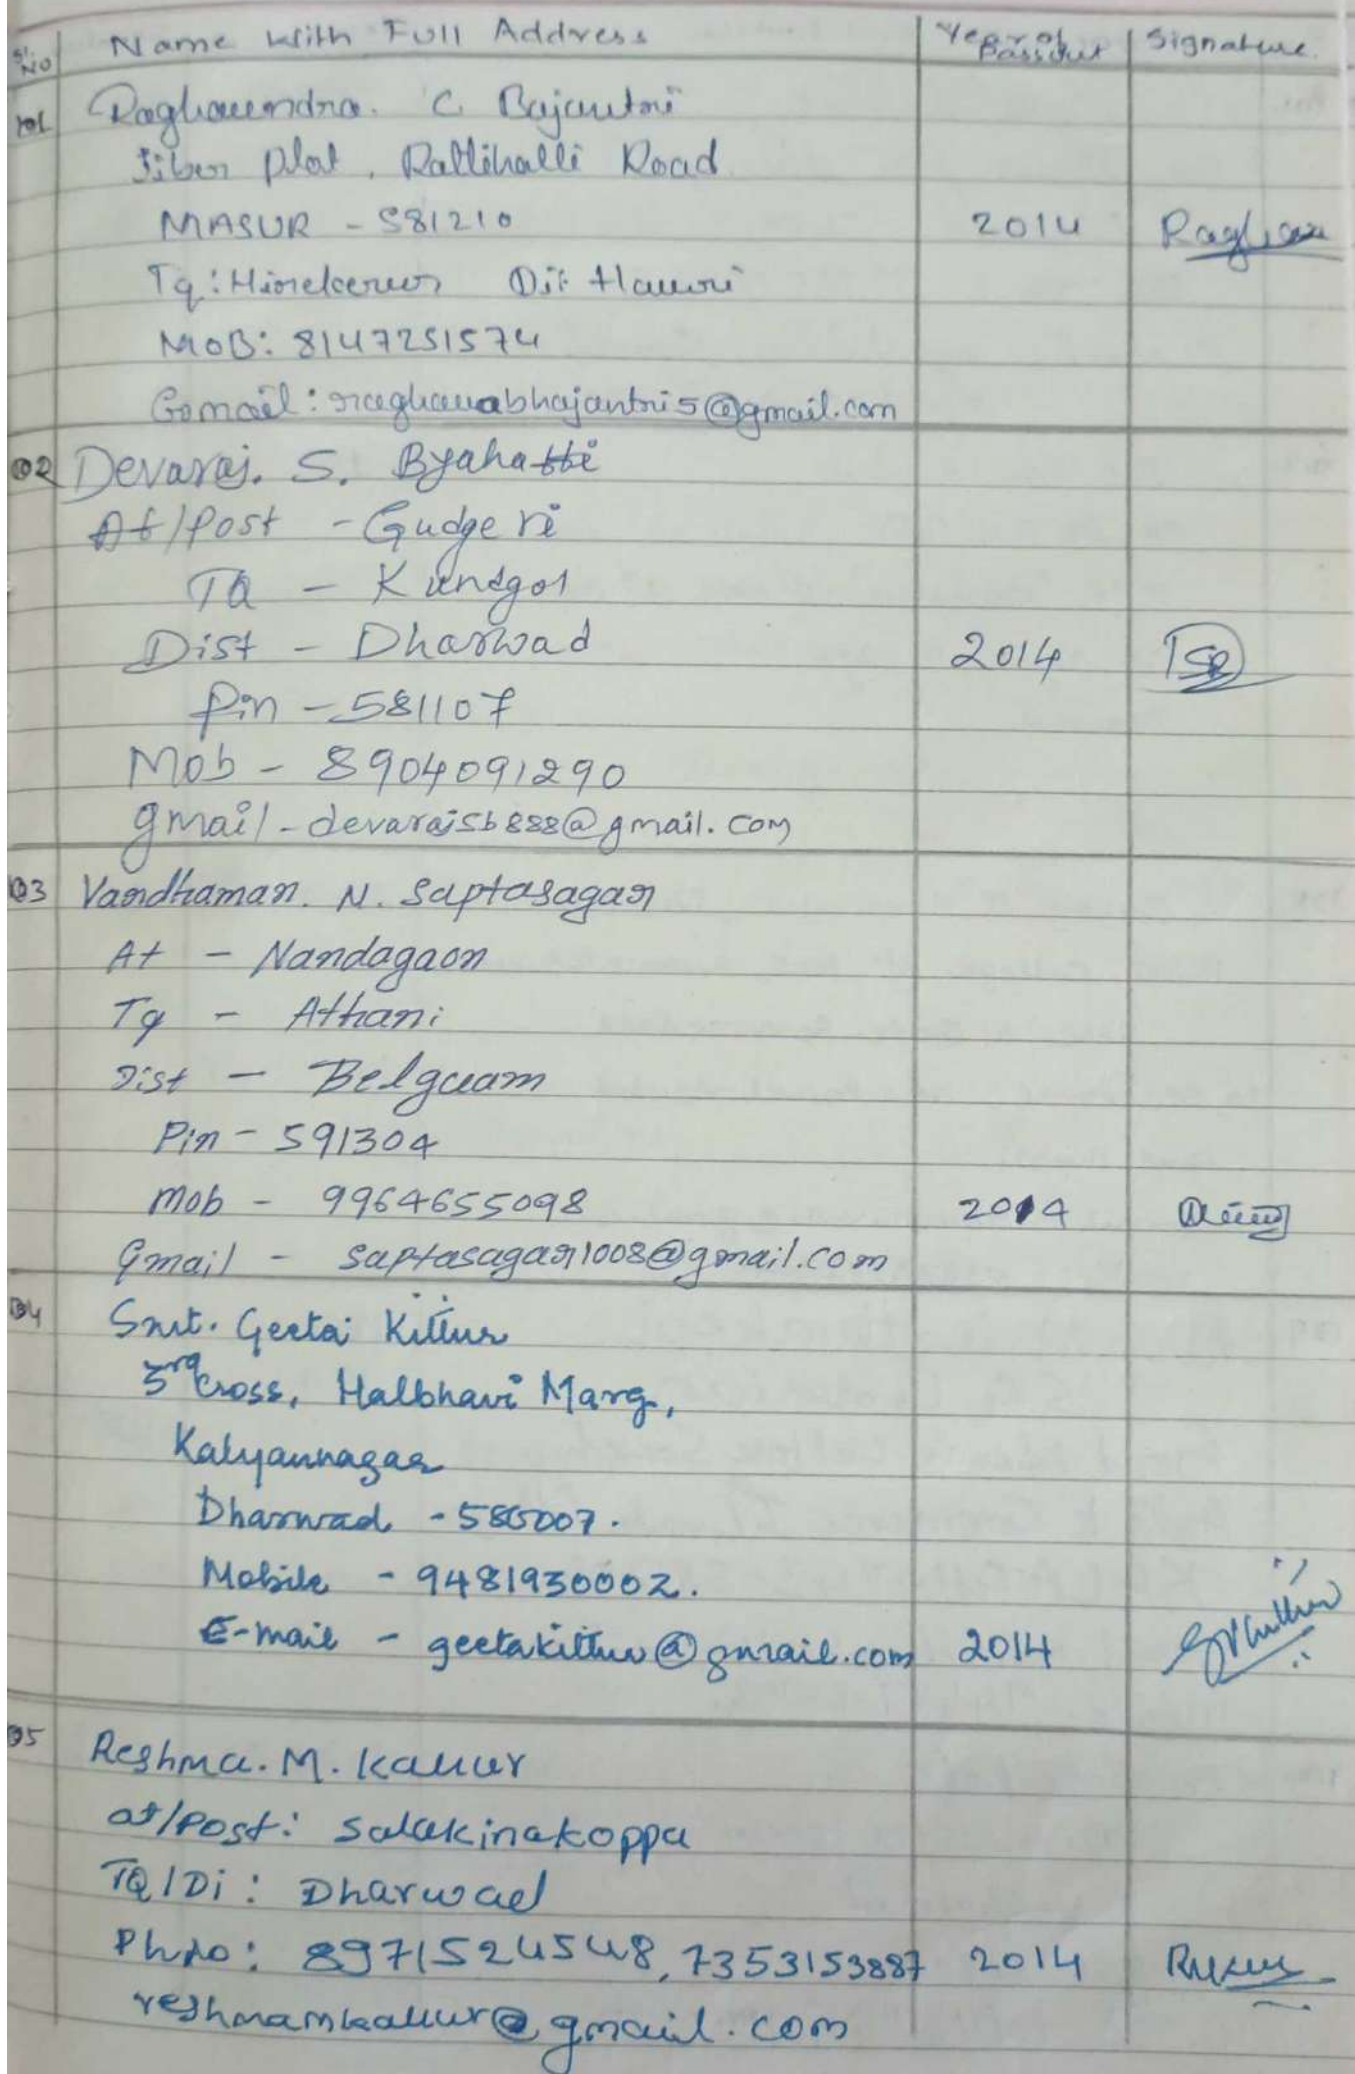 Sl. No Name with Full Address Year of Passout Signature
101 Raghavendra. C. Bajantri
Plot, Rattihalli Road
MASUR - 581210 2014
Tq: Hirekerur Dit: Haveri
MOB: 8147251574
Gomail: raghavabhajantri5@gmail.com
102 Devaraj. S. Byahatti
At/Post - Gudgeri
TQ - Kundgol
Dist - Dharwad 2014
Pin - 581107
Mob - 8904091290
gmail - devarajsb888@gmail.com
103 Vardhaman. N. Saptasagar
At - Nandagaon
Tq - Athani
Dist - Belgaum
Pin - 591304
Mob - 9964655098 2014
Gmail - saptasagar1008@gmail.com
104 Smt. Geeta Kittur
3rd Cross, Halbhavi Marg,
Kalyannagar
Dharwad - 580007.
Mobile - 9481930002.
E-mail - geetakittur@gmail.com 2014
105 Reshma. M. Kallur
at/Post: Salakinakoppa
TQ/Di: Dharwad
Ph no: 8971524548, 7353153887 2014
reshmamkallur@gmail.com